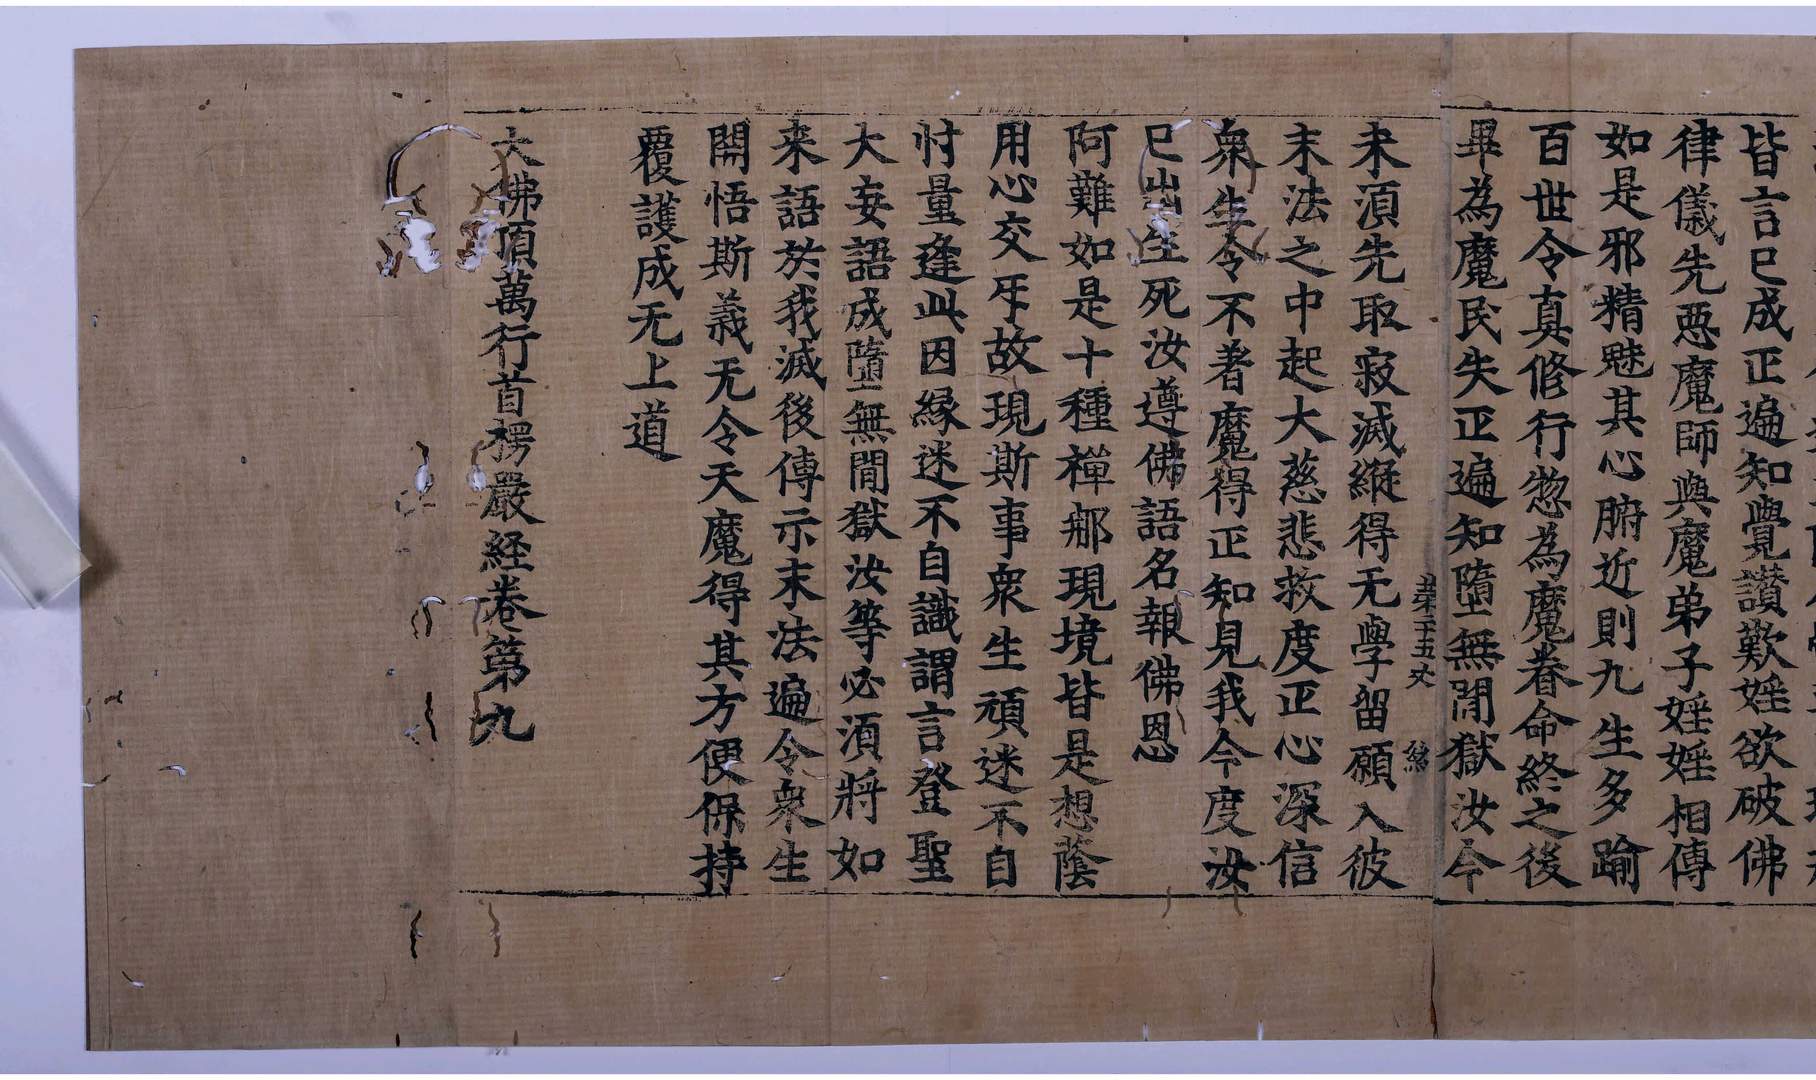 皆言已成正遍知覺讚歎婬欲破佛
律儀先惡魔師與魔弟子婬婬相傳
如是邪精魅其心腑近則九生多踰
百世令真修行惣為魔眷命終之後
畢為魔民失正遍知墮無間獄汝今
未須先取寂滅縱得无學留願入彼
末法之中起大慈悲救度正心深信
衆生令不著魔得正知見我今度汝
已出生死汝遵佛語名報佛恩
阿難如是十種禪郍現境皆是想蔭
用心交㸦故現斯事衆生頑迷不自
忖量逢此因緣迷不自識謂言登聖
大妄語成墮無間獄汝等必須將如
来語於我滅後傳示末法遍令衆生
開悟斯義无令天魔得其方便保持
覆護成无上道
大佛頂萬行首楞嚴経卷第九